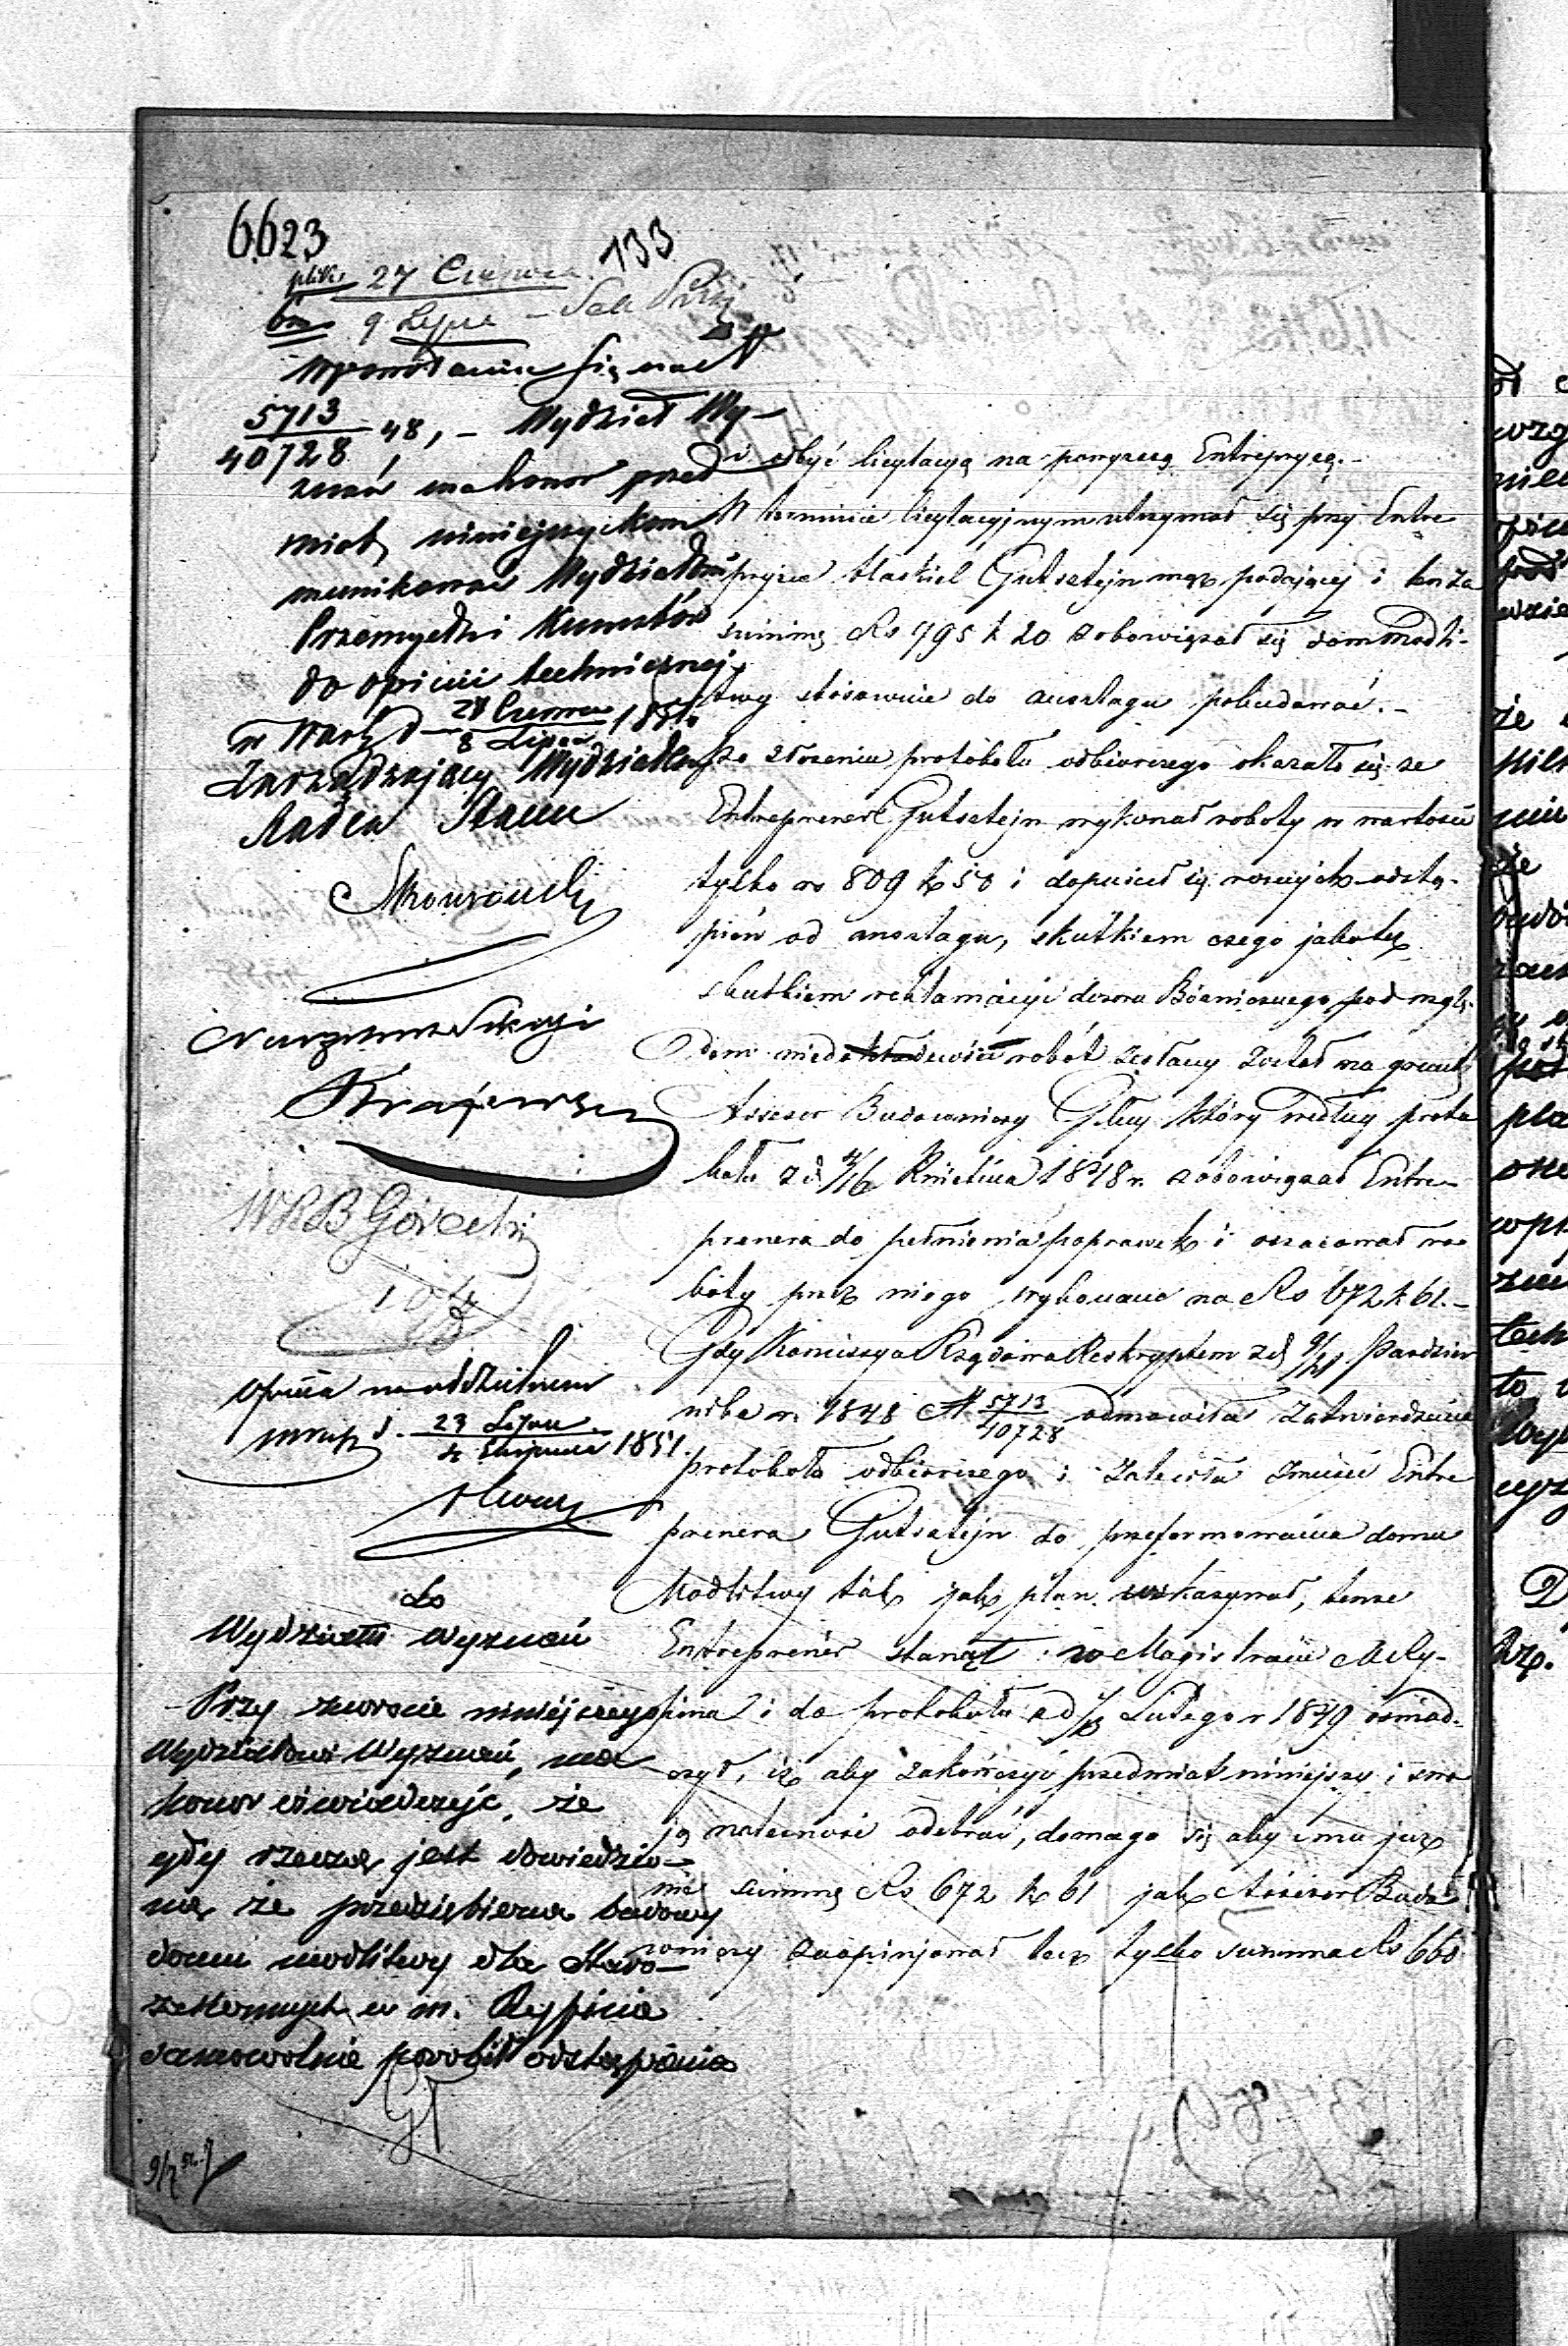 6623
133
27 Czerwca
9 Lipca
się na N
5713
40728 48, - Wydział Wy-
znań ma honor przed
miot niniejszy kom
munikować Wydziałowi
Przemysłu i Kunsztów
do opinii technicznej
w Warsz d 28 Czerwca
8 Lipca 1851
Zarządzający Wydziałem
Radca Stanu
Krajewski
Górecki
Opinia na oddzielnem
d. 23 Lipca
4 Sierpnia 1851.
Do
Wydziału Wyznań
Przy zwrocie niniejszego
Wydziałowi Wyznań, ma
honor oświadczyć, że
gdy rzeczą jest dowiedzio-
ną że przedsiębierca budowy
domu modlitwy dla Staro-
zakonnych w m. Rypinie
samowolnie porobił odstąpienia
i odbyć licytacyą na powyższą Entrepryzę.-
W terminie licytacyjnym utrzymał się przy Entre
pryzie Haskiel Gutsztejn podający i ten za
summę Rs 795 k 20 zobowiązał się dom modli-
twy stósownie do anszlagu pobudować.-
Po złożeniu protokołu odbiorczego okazało się że
Entreprener Gutsztejn wykonał roboty w wartości
tylko rs 809 k 50 i dopuścił się odstą-
pień od anszlagu, skutkiem czego jakoteż
skutkiem reklamacyi dozoru Bóżniczego pod wzglę-
dem robót zesłany został na grunt
Assesor Budowniczy który według proto
kołu z d 4/16 Kwietnia 1848 r. zobowiązał Entre-
prenera do pełnienia poprawek i oszacował ro-
boty przez niego wykonane na Rs 672 k 61.-
Gdy Kommissya Rządowa Reskryptem z d 9/21 Paździer
nika r. 1848 N 5713
40728 odmówiła zatwierdzenia
protokołu odbiorczego i zaleciła zmusić Entre
prenera Gutsztejn do przeformowania domu
Modlitwy tak jak plan wskazywał, tenże
Entreprener stanął w Magistracie M. Ry-
pina i do protokołu z d 1/13 Lutego r 1849 oświad-
czył, iż aby zakończyć przedmiot niniejszy i swo
ją należność odebrać, domaga się aby mu już
nie summę Rs 672 k 61 jak Assesor Budo
wniczy zaopinjował lecz tylko summa Rs 660